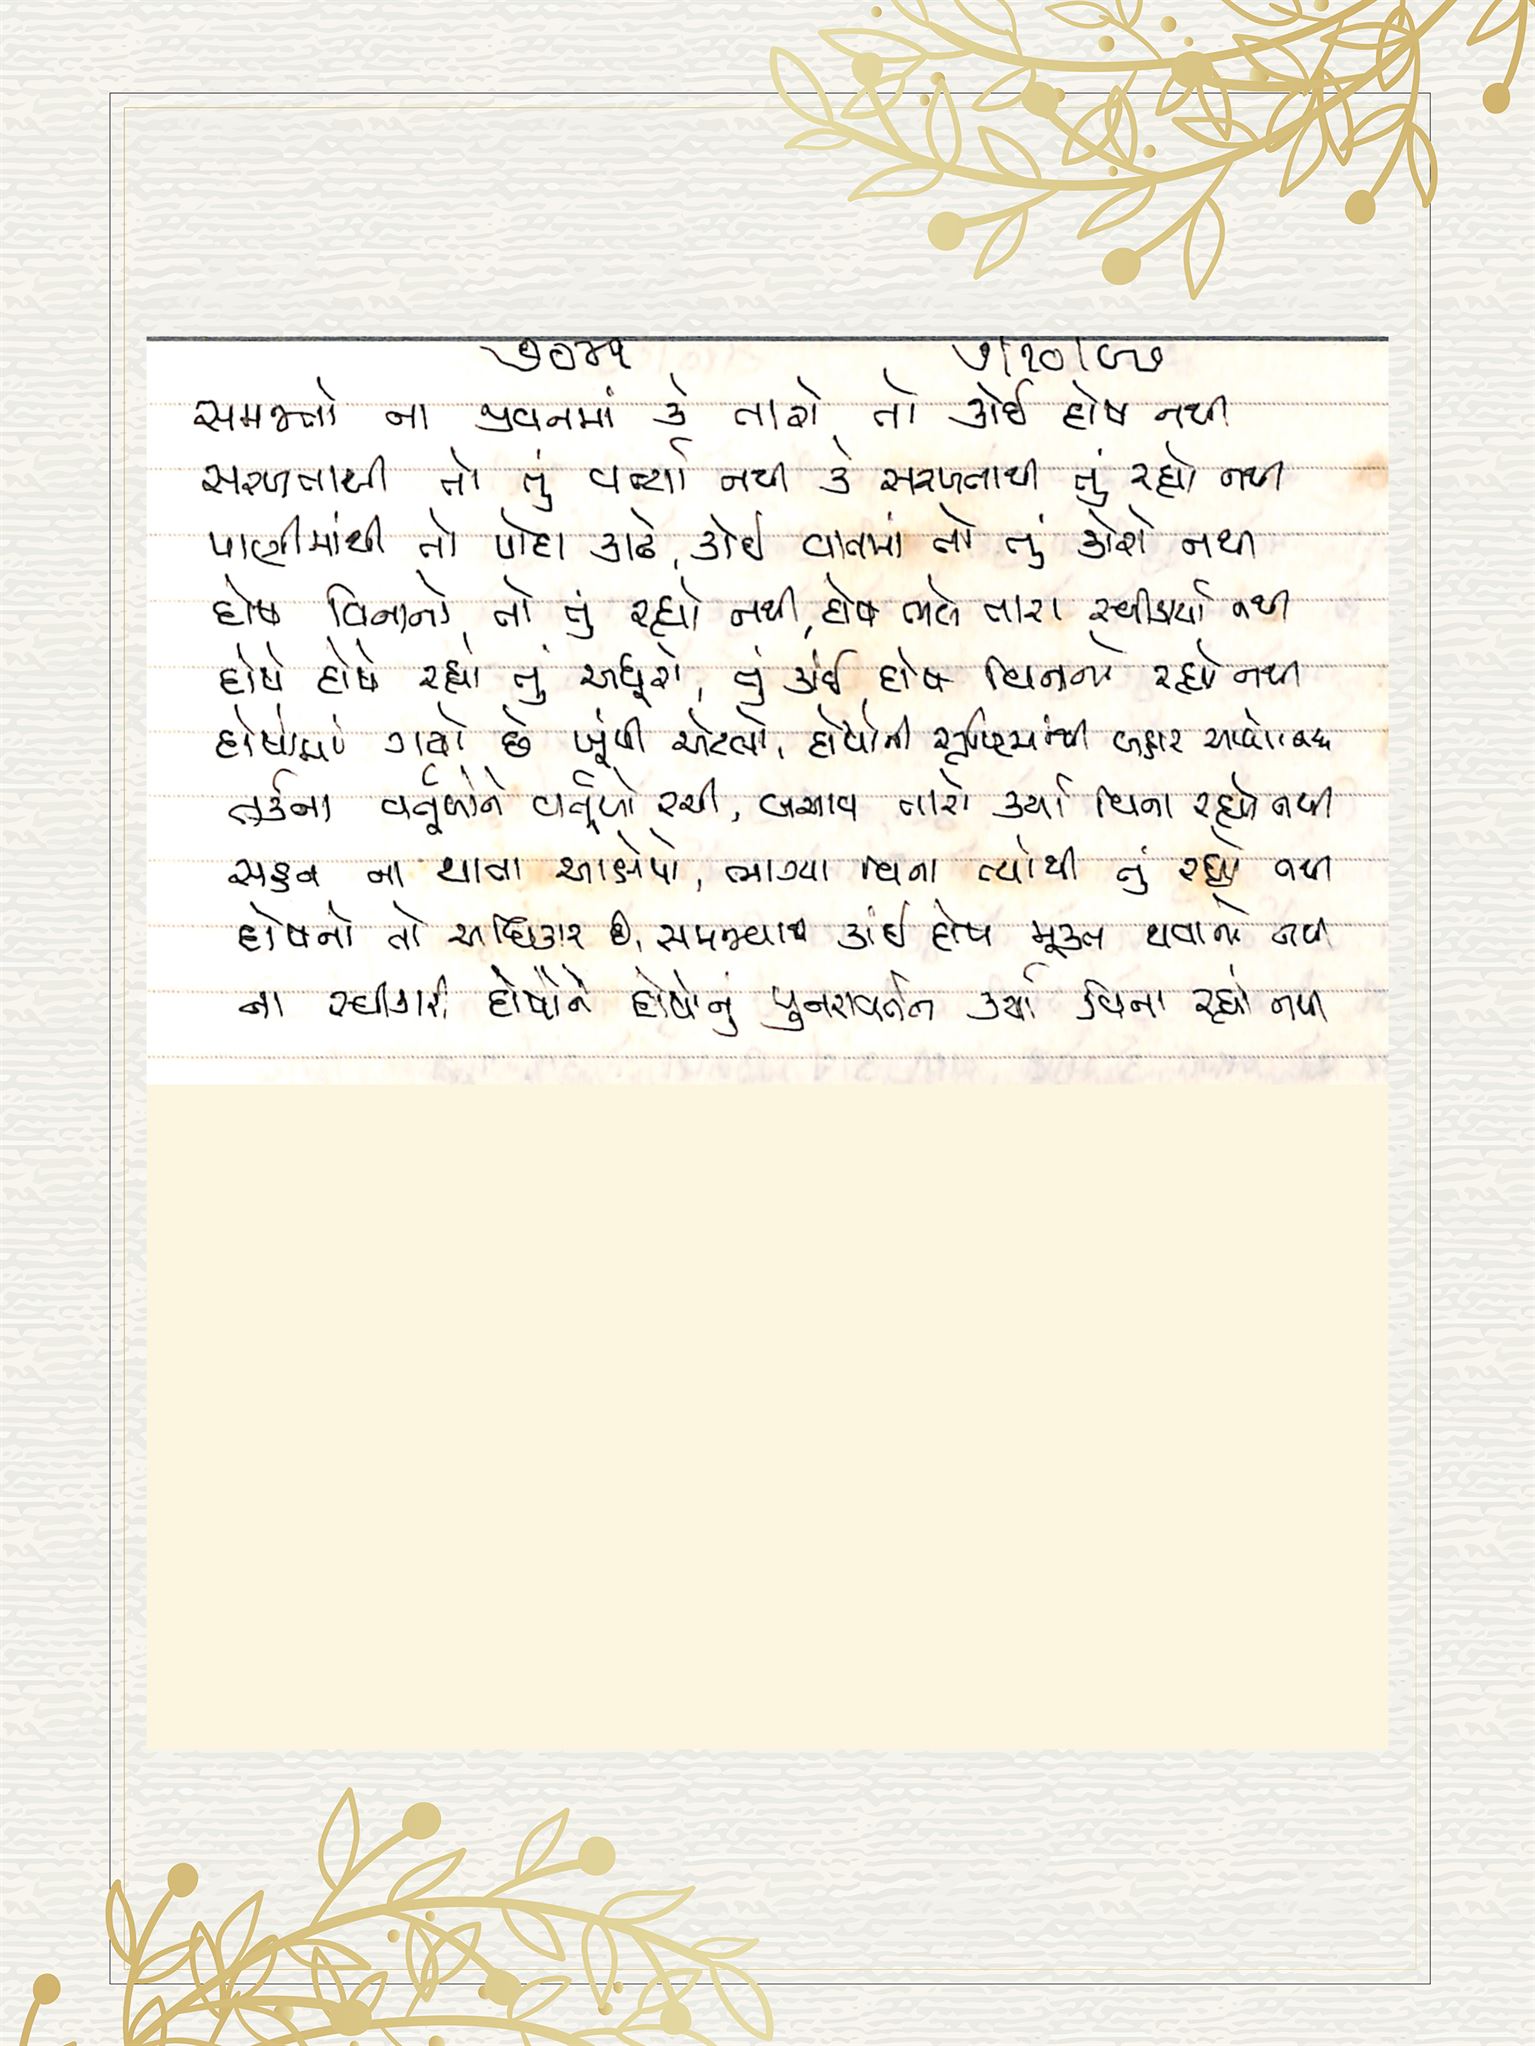 ૭૦૪૧ ૭/૧૦/૯૭
સમજતો ના જીવનમાં કે તારો, તો કોઈ દોષ નથી
સરળતાથી તો તું વર્ત્યો નથી કે સરળતાથી તું રહ્યો નથી
પાણીમાંથી તો પોરા કાઢે, કોઈ વાતમાં તો તું કોરો નથી
દોષ વિનાનો, તો તું રહ્યો નથી, દોષ ભલે તારા સ્વીકાર્યા નથી
દોષે દોષે રહ્યો તું અધૂરો, તું કાંઈ દોષ વિનાનો રહ્યો નથી
દોષોમાં ગયો છે ખૂંપી એટલો, દોષોની સૃષ્ટિમાંથી બહાર આવ્યો નથી
તર્કના વર્તુળોને વર્તુળો રચી, બચાવ તારો કર્યા વિના રહ્યો નથી
સહન ના થાતા આક્ષેપો, ભાગ્યા વિના ત્યાંથી તું રહ્યો નથી
દોષનો તો અધિકાર છે, સમજ્યા કાંઈ દોષ મુક્ત થવાનો નથી
ના સ્વીકારી દોષોને દોષોનું પુનરાવર્તન કર્યા વિના રહ્યો નથી